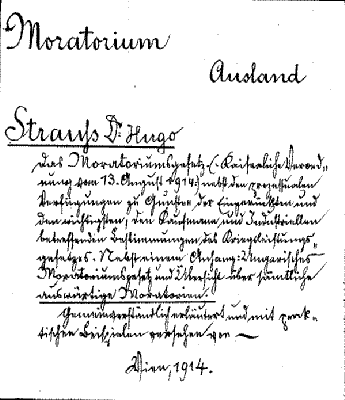 Moratorium
Ausland
Strauss Dr. Hugo
Das Moratoriumsgesetz (: Kaiserliche Verord-
nung vom 13. August 1914:) nebst den prozessualen
Verfügungen zu Gunsten der Eingerückten und
den wichtigsten, den Kaufmann und Industriellen
betreffenden Bestimmungen des Kriegsleistungs-
gesetzes. Nebst einem Anhang: Ungarisches
Moratoriumsgesetz und Übersicht über sämtliche
auswärtige Moratorien.
Gemeinverständlich erläutert und mit prak-
tischen Beispielen versehen von —
Wien, 1914.